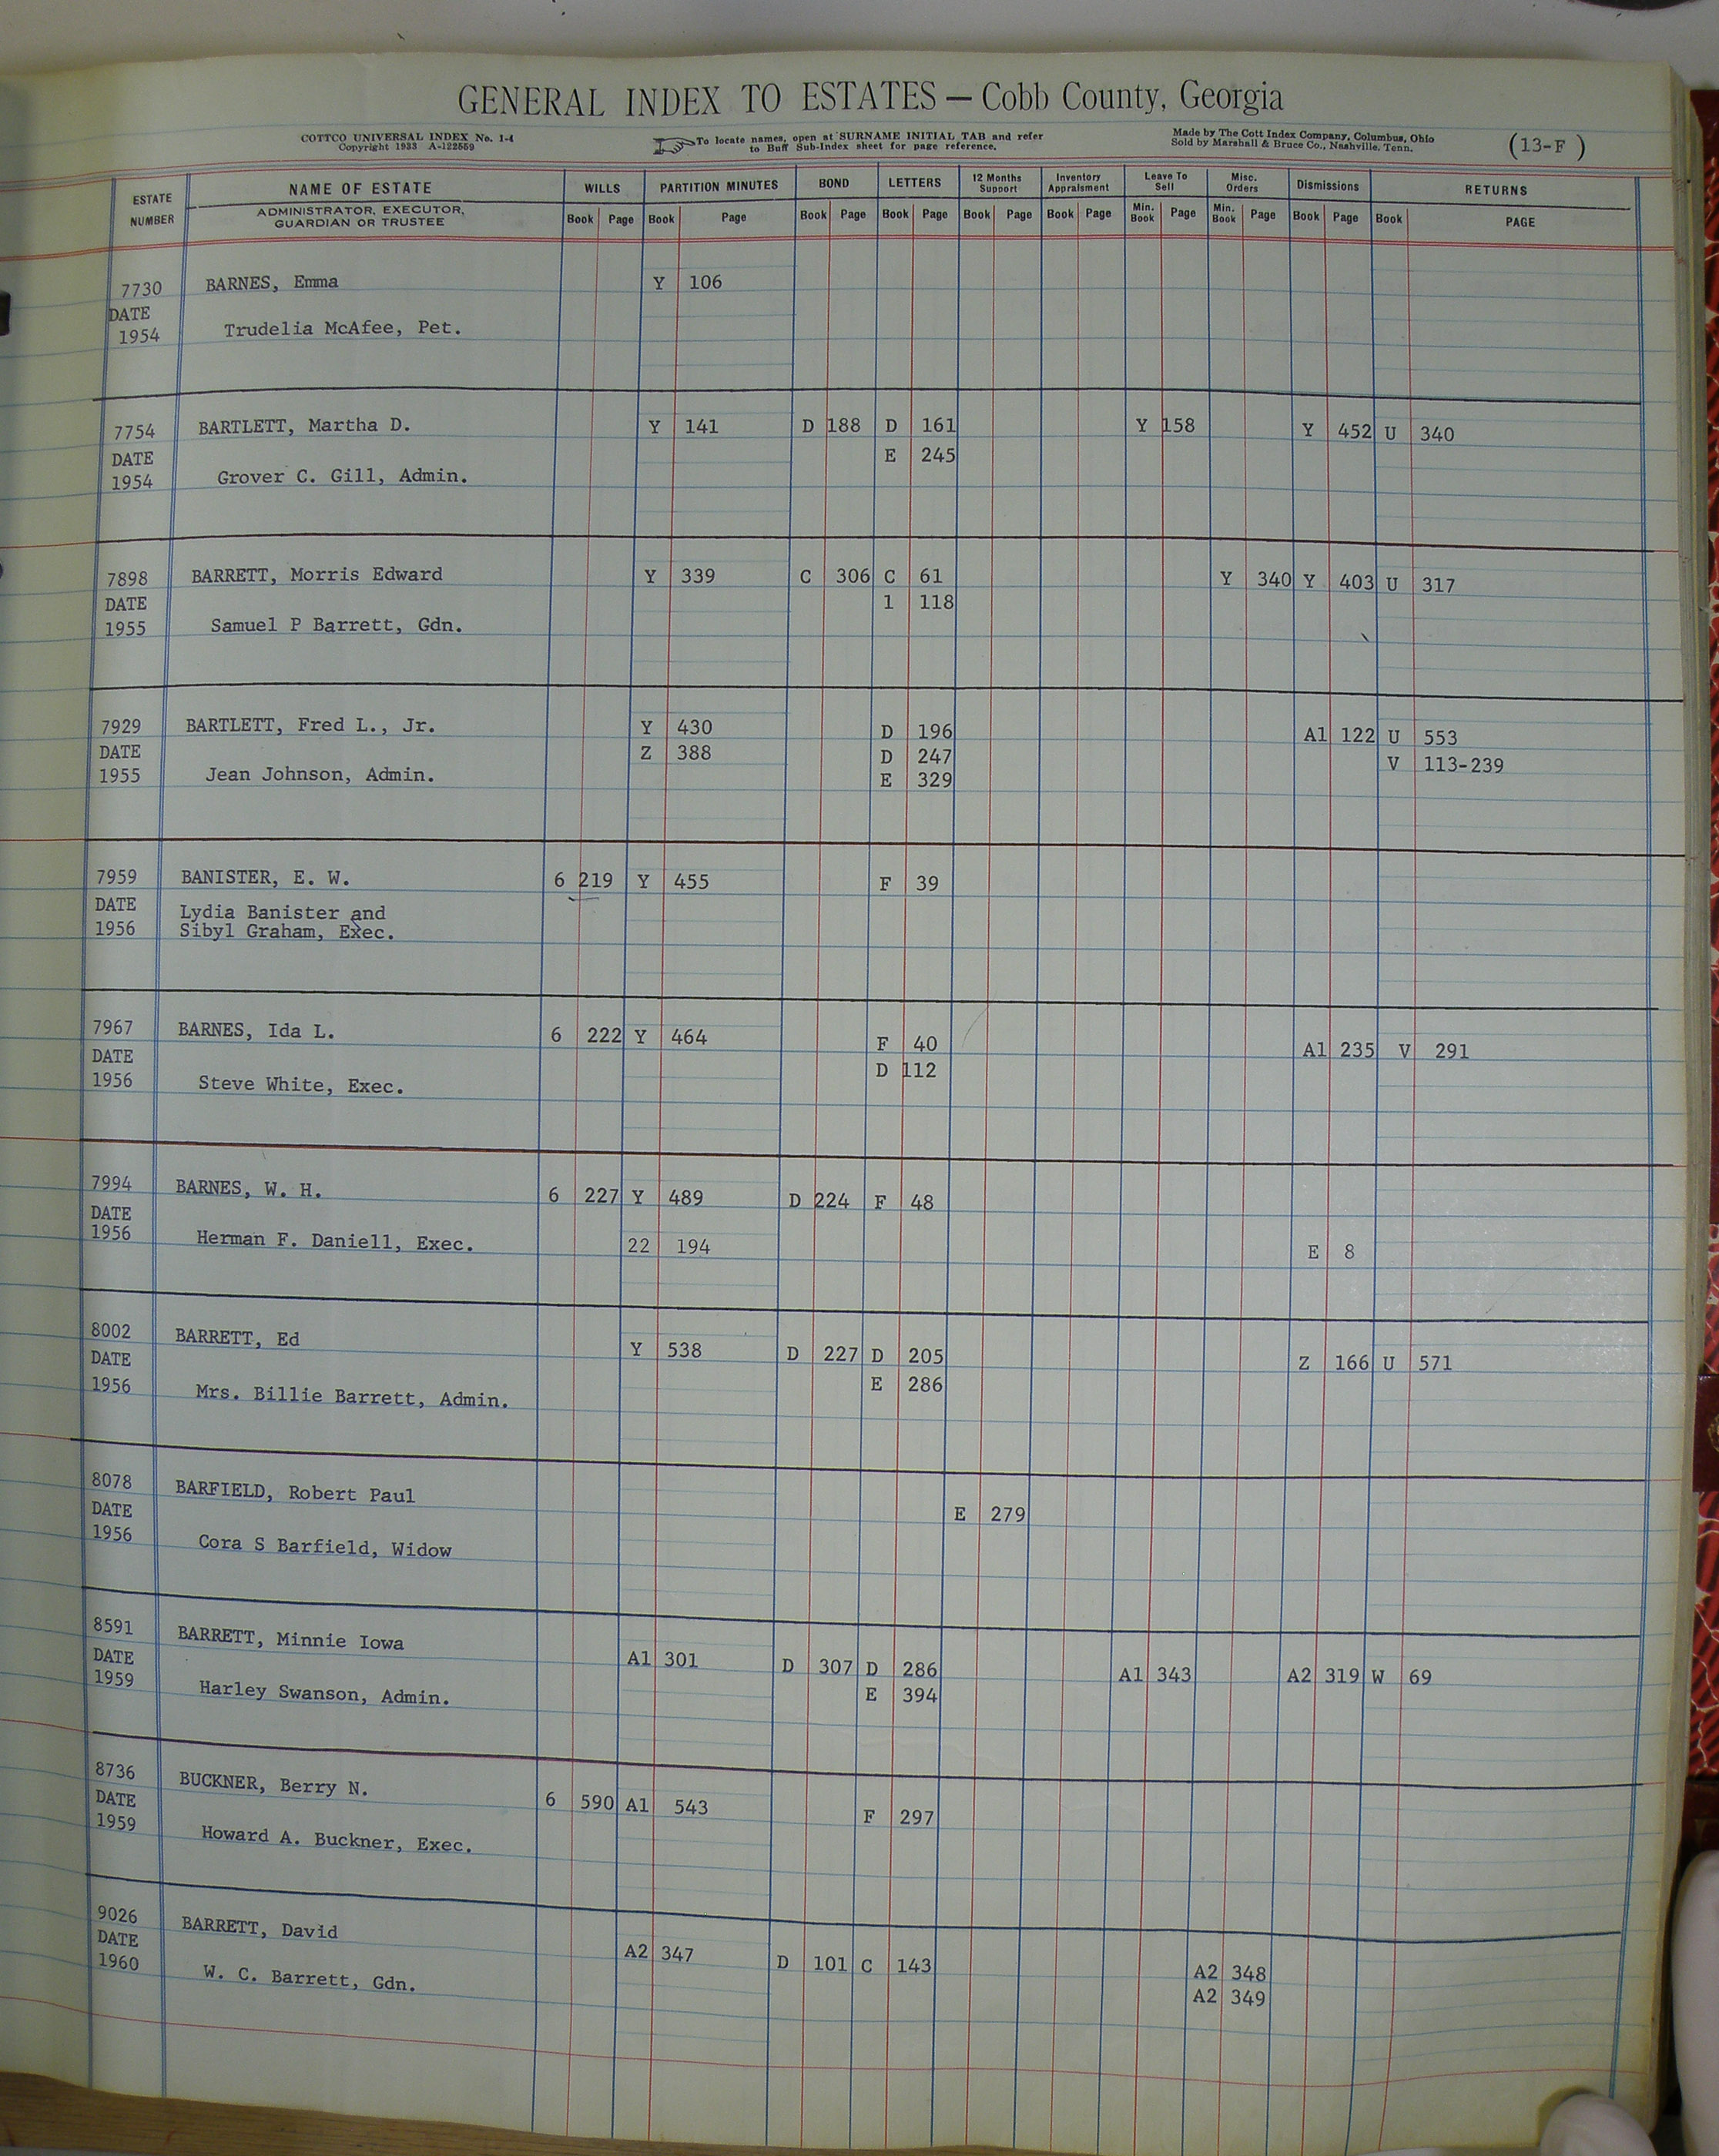 GENERAL INDEX TO ESTATES — Cobb County, Georgia
COTTCO UNIVERSAL INDEX No. 1-4
Copyright 1933 A-122559
To locate names, open at SURNAME INITIAL TAB and refer
to Buff Sub-Index sheet for page reference.
Made by The Cott Index Company, Columbus, Ohio
Sold by Marshall & Bruce Co., Nashville, Tenn.
(13-F )
ESTATE NUMBER
NAME OF ESTATE
ADMINISTRATOR, EXECUTOR,
GUARDIAN OR TRUSTEE
WILLS PARTITION MINUTES BOND LETTERS 12 Months Support Inventory Appraisment Leave To Sell Misc. Orders Dismissions RETURNS
Book Page Book Page Book Page Book Page Book Page Book Page Min. Book Page Min. Book Page Book Page Book PAGE
7730 BARNES, Emma Y 106
DATE
1954 Trudelia McAfee, Pet.
7754 BARTLETT, Martha D. Y 141 D 188 D 161 Y 158 Y 452 U 340
DATE E 245
1954 Grover C. Gill, Admin.
7898 BARRETT, Morris Edward Y 339 C 306 C 61 Y 340 Y 403 U 317
DATE 1 118
1955 Samuel P Barrett, Gdn.
7929 BARTLETT, Fred L., Jr. Y 430 D 196 A1 122 U 553
DATE Z 388 D 247 V 113-239
1955 Jean Johnson, Admin. E 329
7959 BANISTER, E. W. 6 219 Y 455 F 39
DATE Lydia Banister and
1956 Sibyl Graham, Exec.
7967 BARNES, Ida L. 6 222 Y 464 F 40 A1 235 V 291
DATE D 112
1956 Steve White, Exec.
7994 BARNES, W. H. 6 227 Y 489 D 224 F 48
DATE
1956 Herman F. Daniell, Exec. 22 194 E 8
8002 BARRETT, Ed Y 538 D 227 D 205 Z 166 U 571
DATE E 286
1956 Mrs. Billie Barrett, Admin.
8078 BARFIELD, Robert Paul
DATE E 279
1956 Cora S Barfield, Widow
8591 BARRETT, Minnie Iowa
DATE A1 301 D 307 D 286 A1 343 A2 319 W 69
1959 Harley Swanson, Admin. E 394
8736 BUCKNER, Berry N.
DATE 6 590 A1 543 F 297
1959 Howard A. Buckner, Exec.
9026 BARRETT, David
DATE A2 347 D 101 C 143 A2 348
1960 W. C. Barrett, Gdn. A2 349